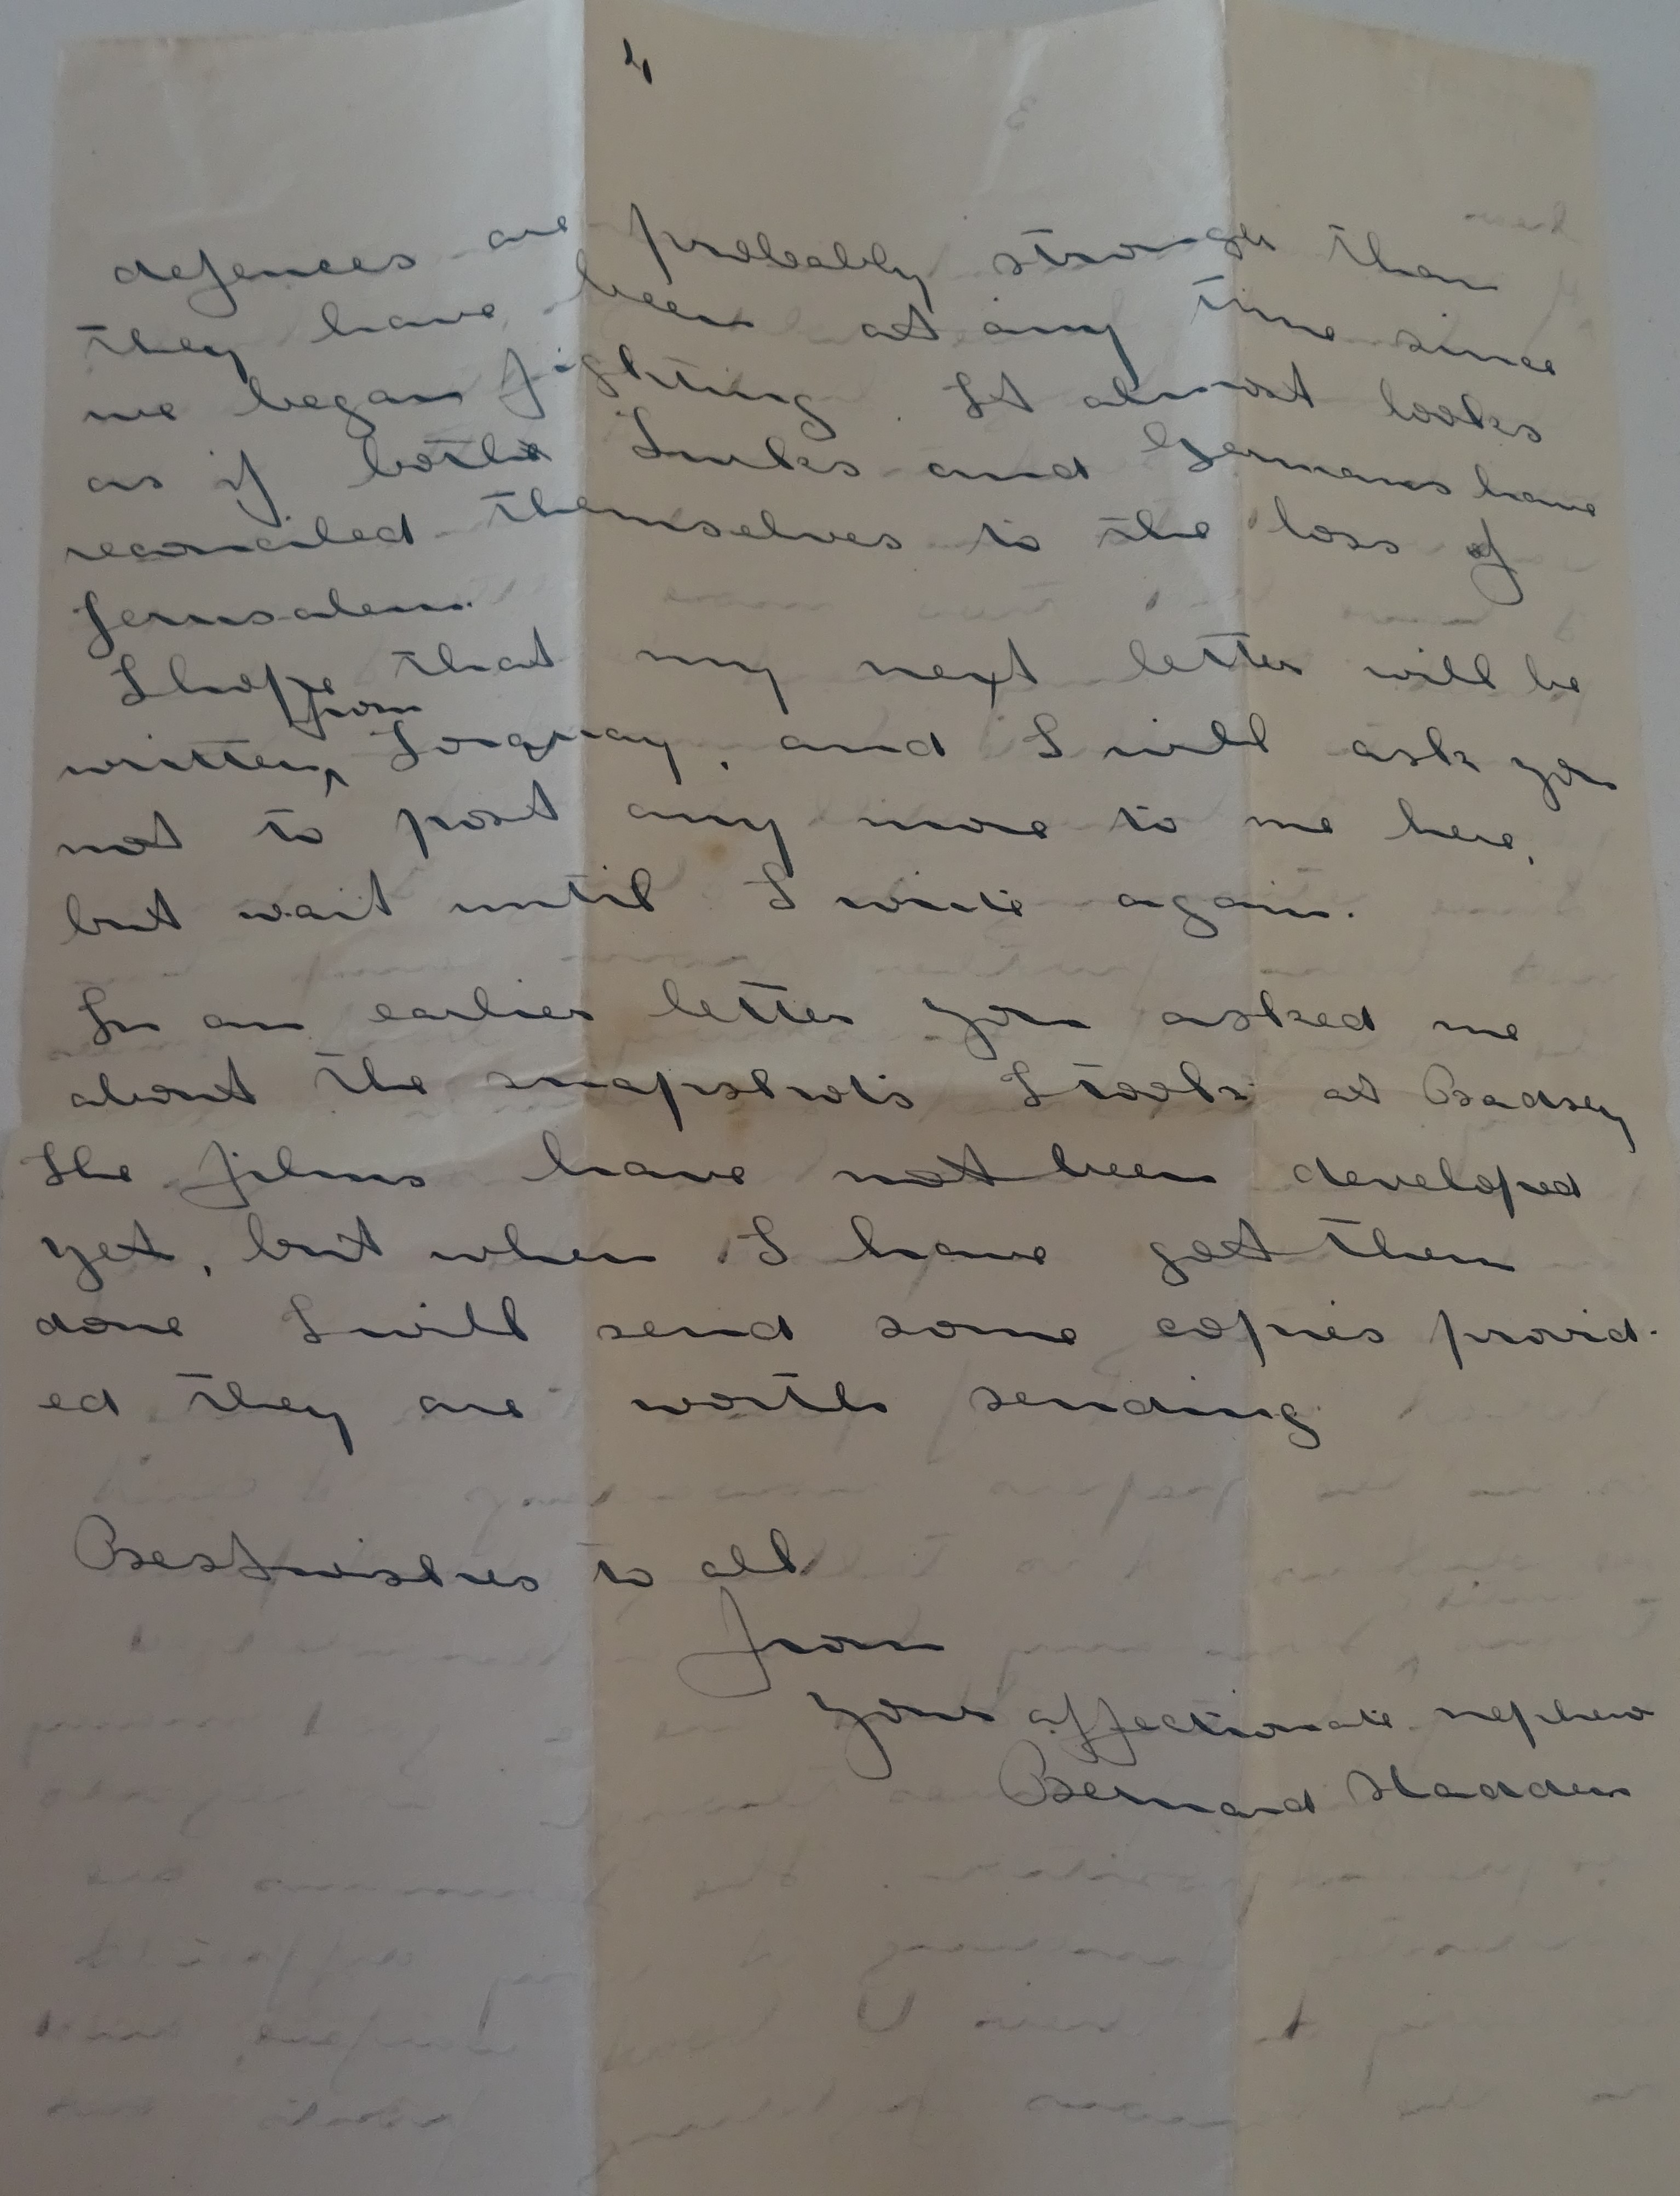 4
defences are probably stronger than
they have been at any time since
we began fighting. It almost looks
as if both Turks and Germans have
reconciled themselves to the loss of
Jerusalem.
I hope that my next letter will be
from
written Torquay, and I will ask you
not to post any more to me here,
but wait until I write again.
In an earlier letter you asked me
about the snapshots I took at Badsey
The films have not been developed
yet, but when I have got them
done I will send some copies provid-
ed they are worth sending
Best wishes to all
from
your affectionate nephew
Bernard Sladden